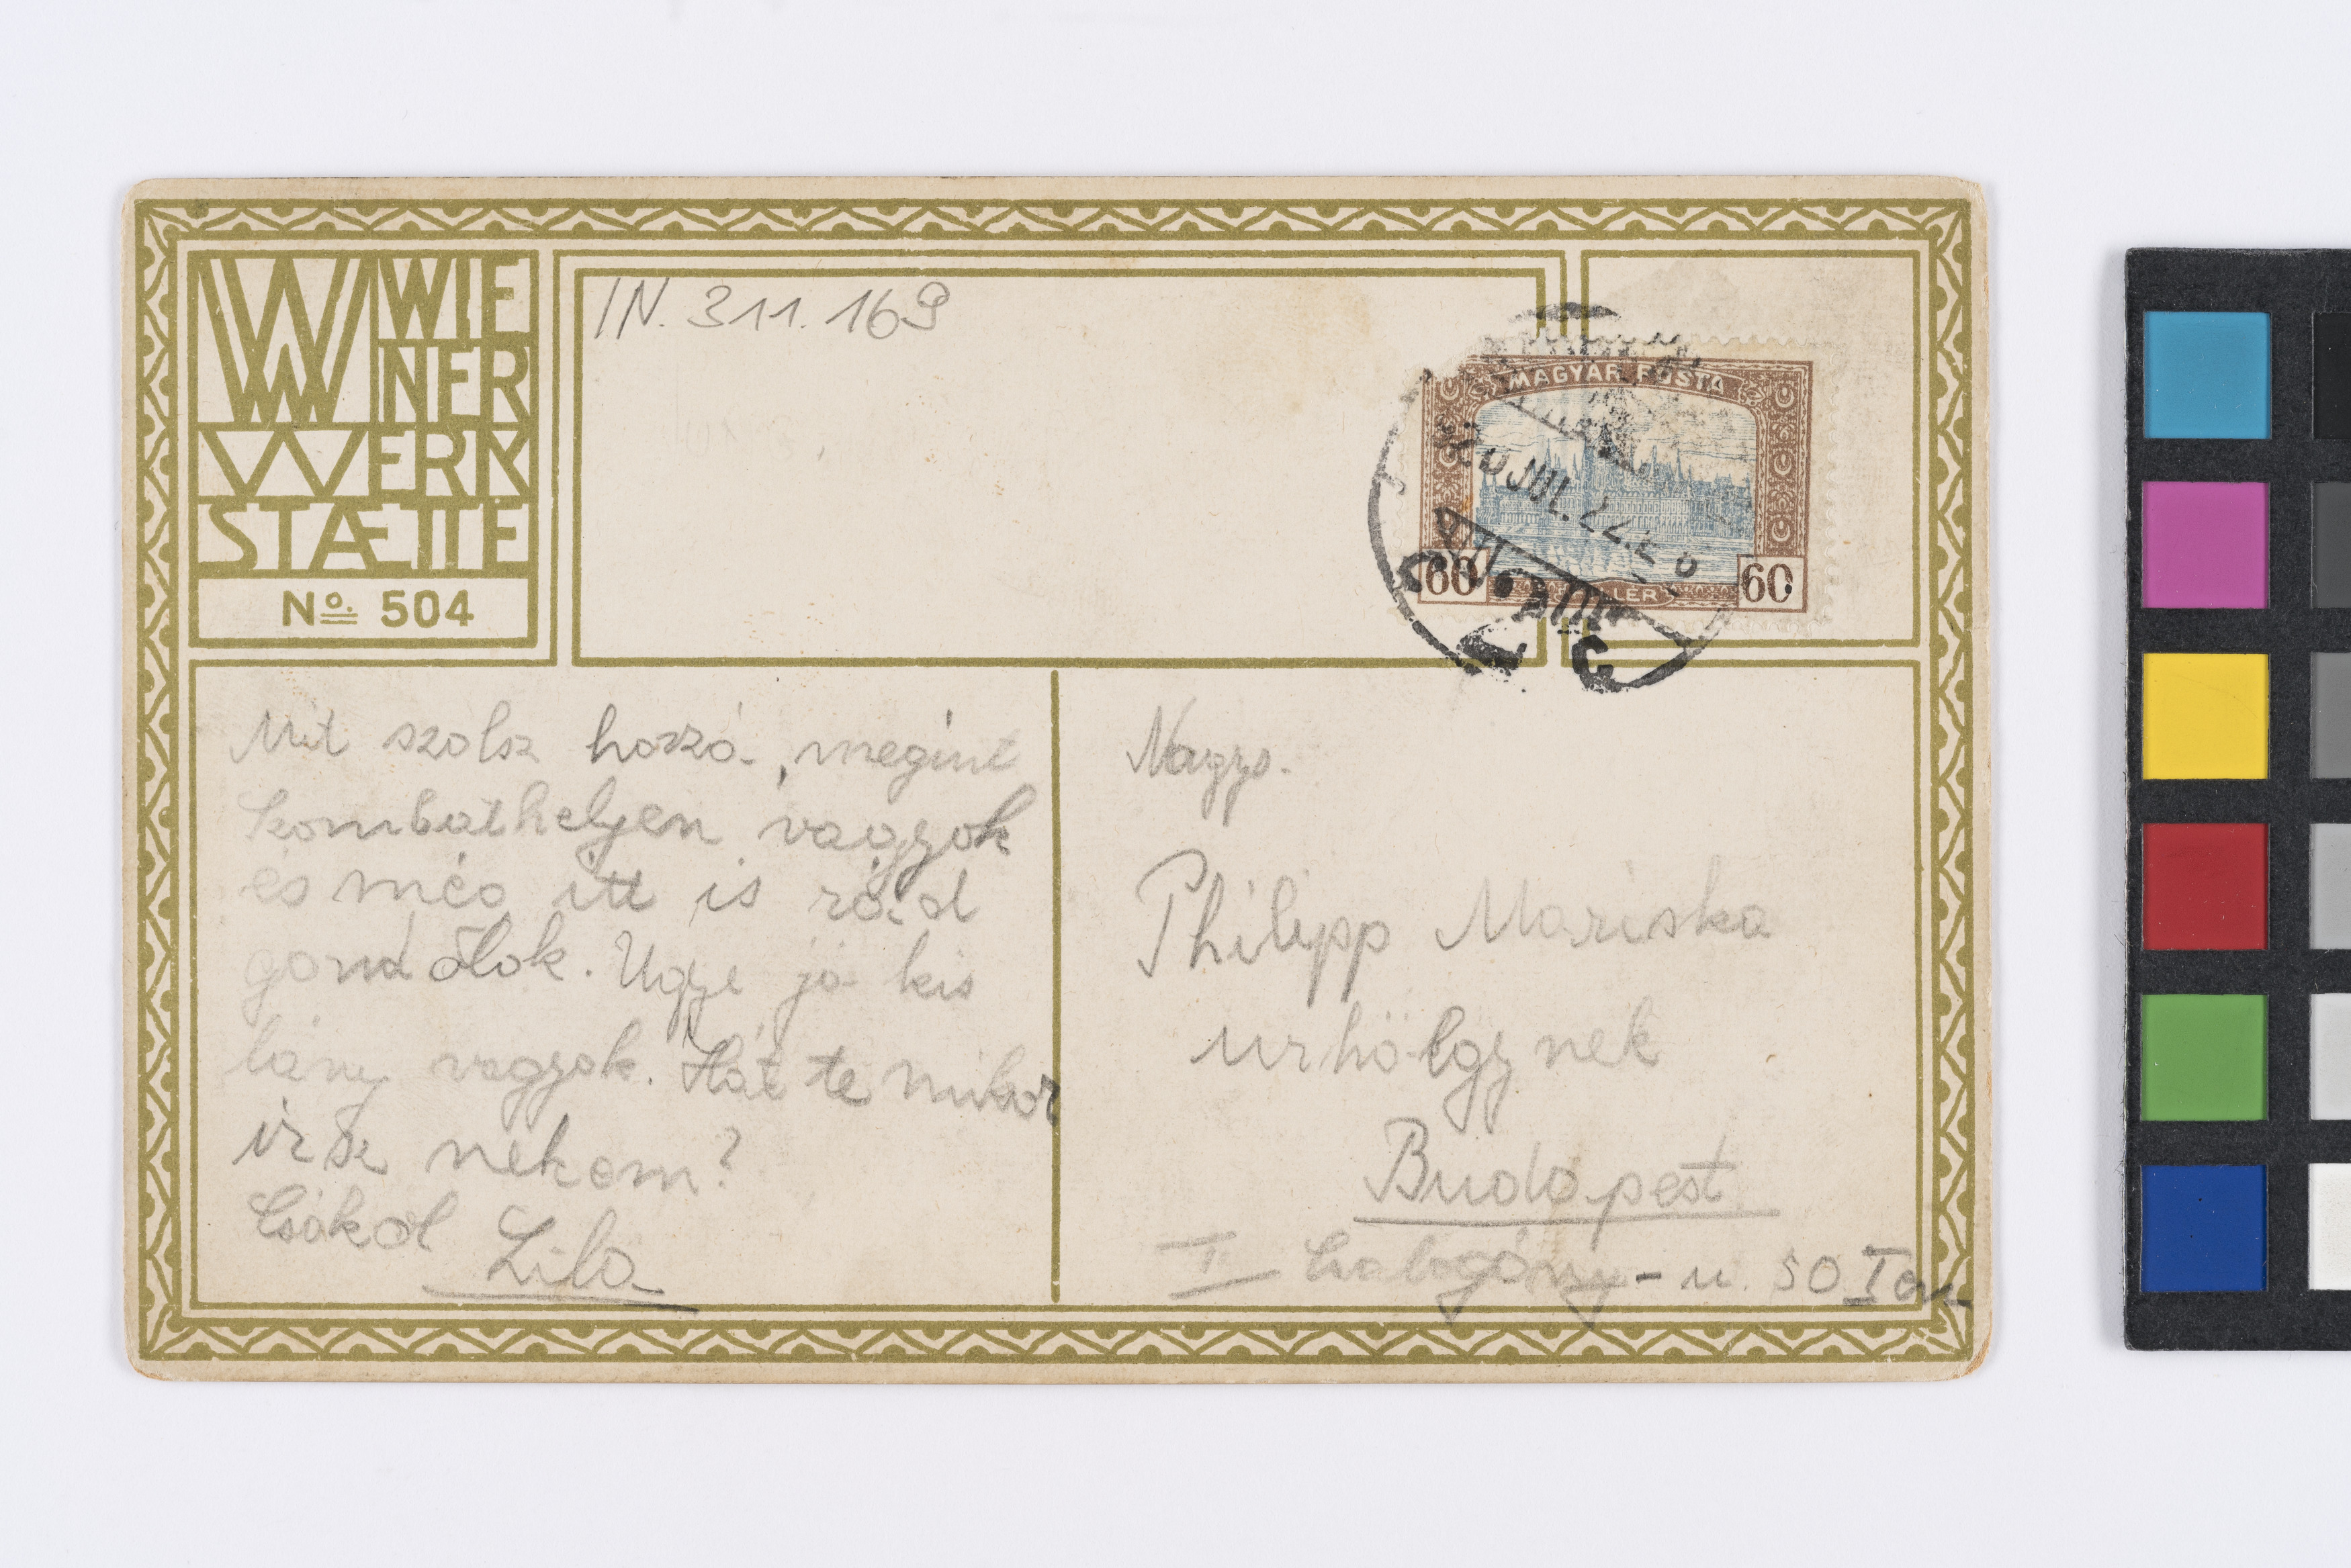 WIE
NER
WERK
STÆTTE
No. 504
IN. 311.169
MAGYAR POSTA
20 JUL. 22.
60 60
Mit szolsz hozzá, megint
Szombathelyen vagyok
és még itt is rád
gondolok. Ugye jó kis
lány vagyok. Hát te mikor
irsz nekem?
Csókol Lila
Nagys.
Philipp Mariska
urhölgynek
Budapest
I - u. 50 I em